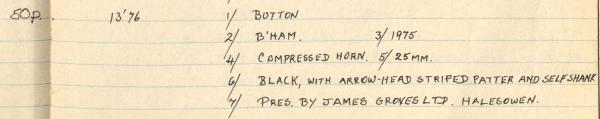 50p. 13'76 1/ BUTTON
2/ B'HAM. 3/ 1975
4/ COMPRESSED HORN. 5/ 25MM.
6/ BLACK, WITH ARROW-HEAD STRIPED PATTER AND SELFSHANK
7/ PRES. BY JAMES GROVES LTD. HALESOWEN.